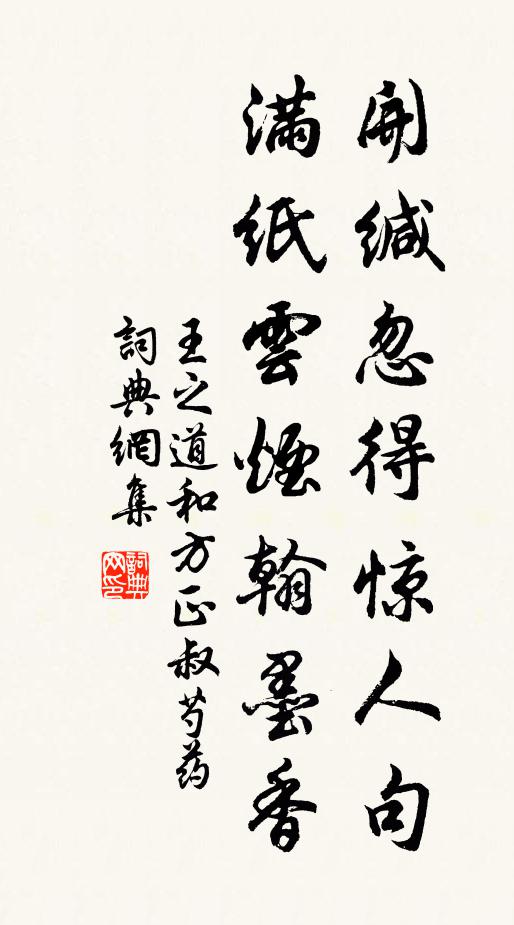 開緘忽得惊人句
滿紙雲煙翰墨香
王之道和方正叔芍药
詞典網集
詞典
网印